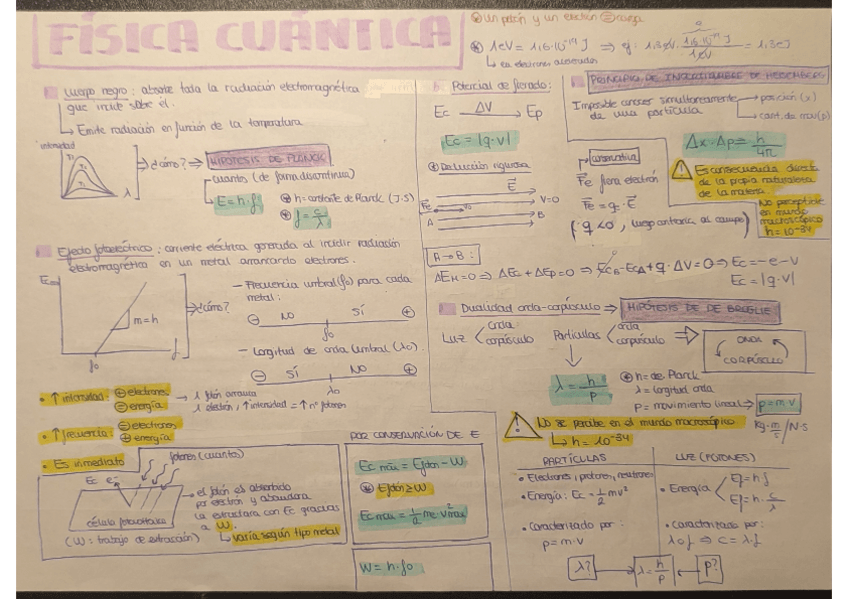 FÍSICA CUÁNTICA
* Un fotón y un electrón
* 1eV = 1,6·10⁻¹⁹ J ⇒
Cuerpo negro: absorbe toda la radiación electromagnética
que incide sobre él.
Emite radiación en función de la temperatura
intensidad
λ
¿cómo? ⇒ HIPÓTESIS DE PLANCK
cuantos (de forma discontinua)
E = h·f
* h = constante de Planck (J·s)
* f = c/λ
Efecto fotoeléctrico: corriente eléctrica generada al incidir radiación
electromagnética en un metal arrancando electrones.
m = h
fo
f
¿cómo?
— Frecuencia umbral (fo) para cada
metal:
NO SÍ
fo
— Longitud de onda umbral (λo).
SÍ NO
λo
• ↑ intensidad: + electrones
= energía
1 fotón arranca
1 electrón, ↑ intensidad = ↑ nº fotones
• ↑ frecuencia: = electrones
+ energía
• Es inmediato
fotones (cuantos)
Ec e⁻
célula fotovoltaica
(W: trabajo de extracción)
• el fotón es absorbido
por electrón y abandona
la estructura con Ec gracias
a W.
varía según tipo metal
POR CONSERVACIÓN DE E
Ec máx = Efotón - W
* Efotón ≥ W
Ec máx = 1/2 me·v² máx
W = h·fo
Potencial de frenado:
Ec ΔV → Ep
Ec = |q·V|
* Deducción rigurosa
E
V=0
Fe
A B
convenientiva
Fe fuerza electrón
Fe = q·E
(q<0, luego contraria al campo)
A→B:
ΔEm = 0 ⇒ ΔEc + ΔEp = 0 ⇒ EcB - EcA + q·ΔV = 0 ⇒ Ec = -e·V
Ec = |q·V|
PRINCIPIO DE INCERTIDUMBRE DE HEISENBERG
Imposible conocer simultáneamente
de una partícula
posición (x)
cant. de mov (p)
Δx·Δp ≥ h/4π
Es consecuencia directa
de la propia naturaleza
de la materia.
No perceptible
en mundo
macroscópico
h = 10⁻³⁴
Dualidad onda-corpúsculo ⇒ HIPÓTESIS DE DE BROGLIE
Luz onda corpúsculo Partículas onda corpúsculo ⇒
ONDA
CORPÚSCULO
λ = h/p
* h = de Planck
λ = longitud onda
p = movimiento lineal ⇒ p = m·v
kg·m/s / N·s
No se percibe en el mundo macroscópico.
h = 10⁻³⁴
PARTÍCULAS
• Electrones, protones, neutrones
• Energía: Ec = 1/2 mv²
• Caracterizado por:
p = m·v
LUZ (FOTONES)
• Energía
Ef = h·f
Ef = h·c/λ
• Caracterizada por:
λ o f ⇒ c = λ·f
λ? → λ = h/p ← p?